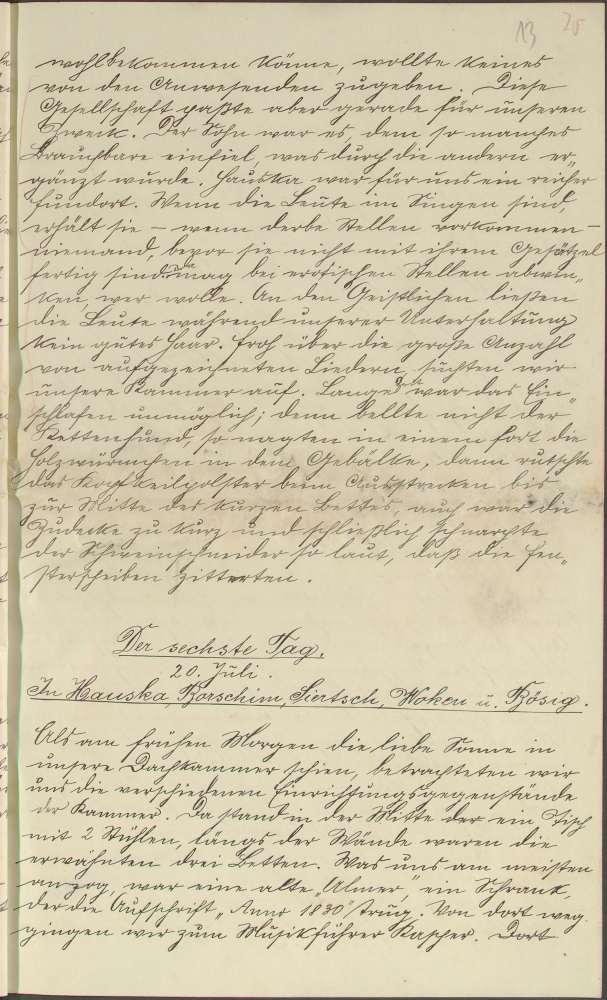 13 28
wohlbekommen könne, wollte keines
von den Anwesenden zugeben. Diese
Gesellschaft paßte aber gerade für unseren
Zweck. Der Sohn war es, dem so manches
Brauchbare einfiel, was durch die andern er„
gänzt wurde. Hauska war für uns ein reicher
Fundort. Wenn die Leute im Singen sind,
erhält sie – wenn derbe Stellen vorkommen –
niemand, bevor sie nicht mit ihrem Gesätzel
fertig sind. Da mag bei erotischen Stellen abwin„
ken, wer wolle. An den Geistlichen ließen
die Leute während unserer Unterhaltung
kein gutes Haar. Froh über die große Anzahl
von aufgezeichneten Liedern, suchten wir
unsere Kammer auf. Lange war das Ein„
schlafen unmöglich; denn bellte nicht der
Kettenhund, so nagten in einem fort die
Holzwürmchen in dem Gebälke, dann rutschte
das Kopfkeilpolster beim Ausstrecken bis
zur Mitte des kurzen Bettes, auch war die
Zudecke zu kurz und schließlich schnarchte
der Schweinschneider so laut, daß die Fen„
sterscheiben zitterten.
Der sechste Tag.
20. Juli.
In Hauska, Borschim, Siertsch, Woken u. Bösig.
Als am frühen Morgen die liebe Sonne in
unsere Dachkammer schien, betrachteten wir
uns die verschiedenen Einrichtungsgegenstände
der Kammer. Da stand in der Mitte der ein Tisch
mit 2 Stühlen, längs der Wände waren die
erwähnten drei Betten. Was uns am meisten
anzog, war eine alte „Almer,“ ein Schrank,
der die Aufschrift „Anno 1830“ trug. Von dort weg
gingen wir zum Musikführer Kascher. Dort